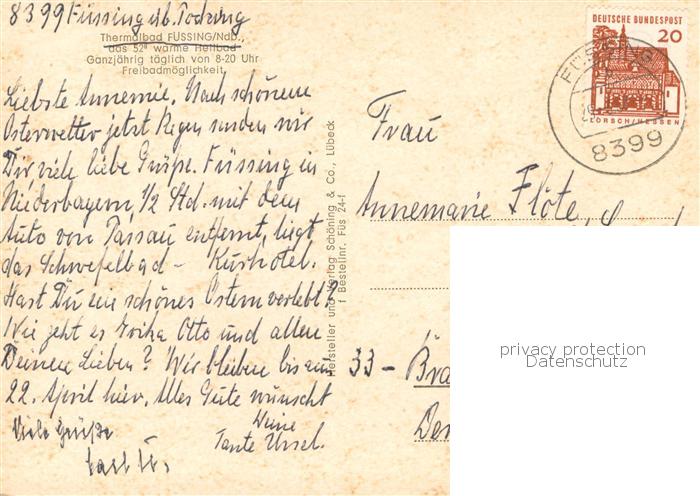 8399 Füssing üb. Tockung
Thermalbad FÜSSING/Ndb.,
das 52° warme Heilbad
Ganzjährig täglich von 8-20 Uhr
Freibadmöglichkeit
Liebste Annemie. Nach schönem
Osterwetter jetzt Regen senden wir
Dir viele liebe Grüße. Füssing in
Niederbayern, 1/2 Std. mit dem
Auto von Passau entfernt, liegt
das Schwefelbad - Kurhotel.
Hast Du ein schönes Ostern verlebt?
Wie geht es Otto und allen
Deinen Lieben? Wir bleiben bis zum
22. April hier. Alles Gute wünscht
Deine
Tante Ursel.
Viele Grüße
Hersteller und Verlag Schöning & Co., Lübeck
f Bestellnr. Füs 24-f
DEUTSCHE BUNDESPOST
20
LORSCH/HESSEN
FÜSSING
8399
Frau
Annemarie Flöte,
33 - Bra
privacy protection
Datenschutz